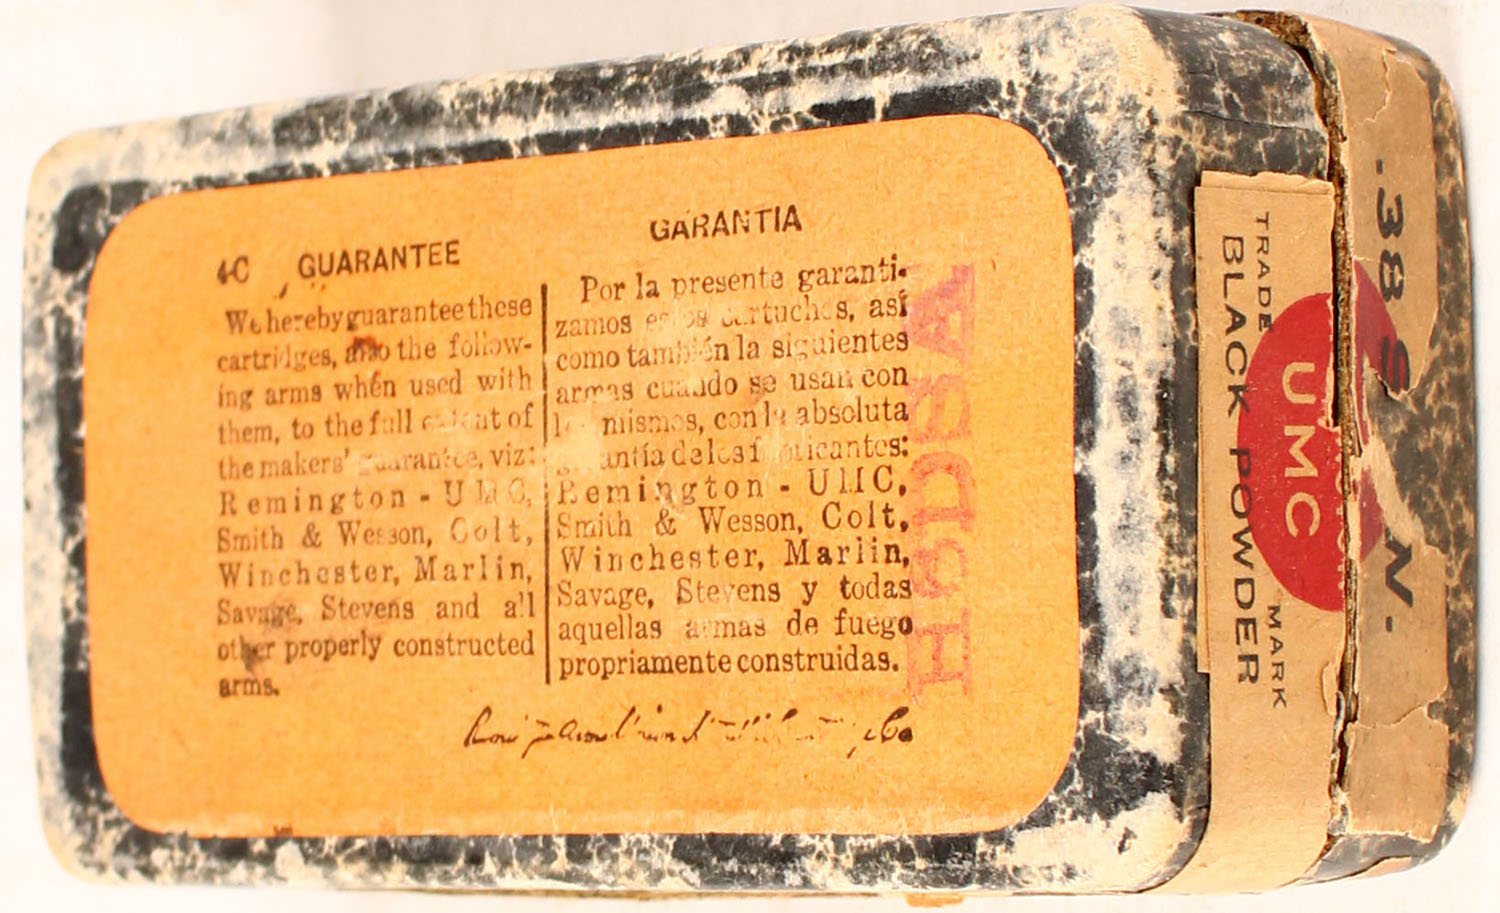 4C GUARANTEE
We hereby guarantee these
cartridges, also the follow-
ing arms when used with
them, to the full extent of
the makers' guarantee, viz:
Remington - UMC,
Smith & Wesson, Colt,
Winchester, Marlin,
Savage, Stevens and all
other properly constructed
arms.
GARANTIA
Por la presente garanti-
zamos estos cartuchos, así
como también la siguientes
armas cuando se usan con
los mismos, con la absoluta
garantía de los fabricantes:
Remington - UMC,
Smith & Wesson, Colt,
Winchester, Marlin,
Savage, Stevens y todas
aquellas armas de fuego
propriamente construidas.
TRADE MARK
UMC
BLACK POWDER
.38 S W.